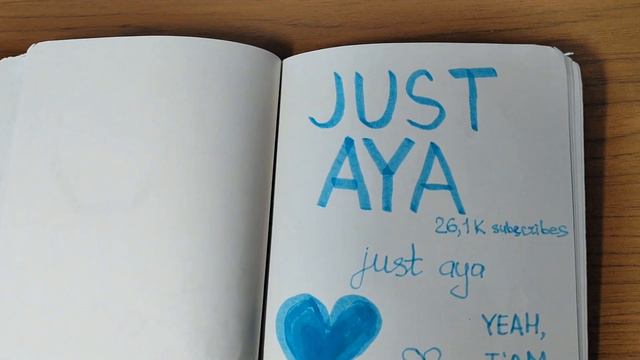 JUST
AYA
26,1K subscribes
just aya
YEAH,